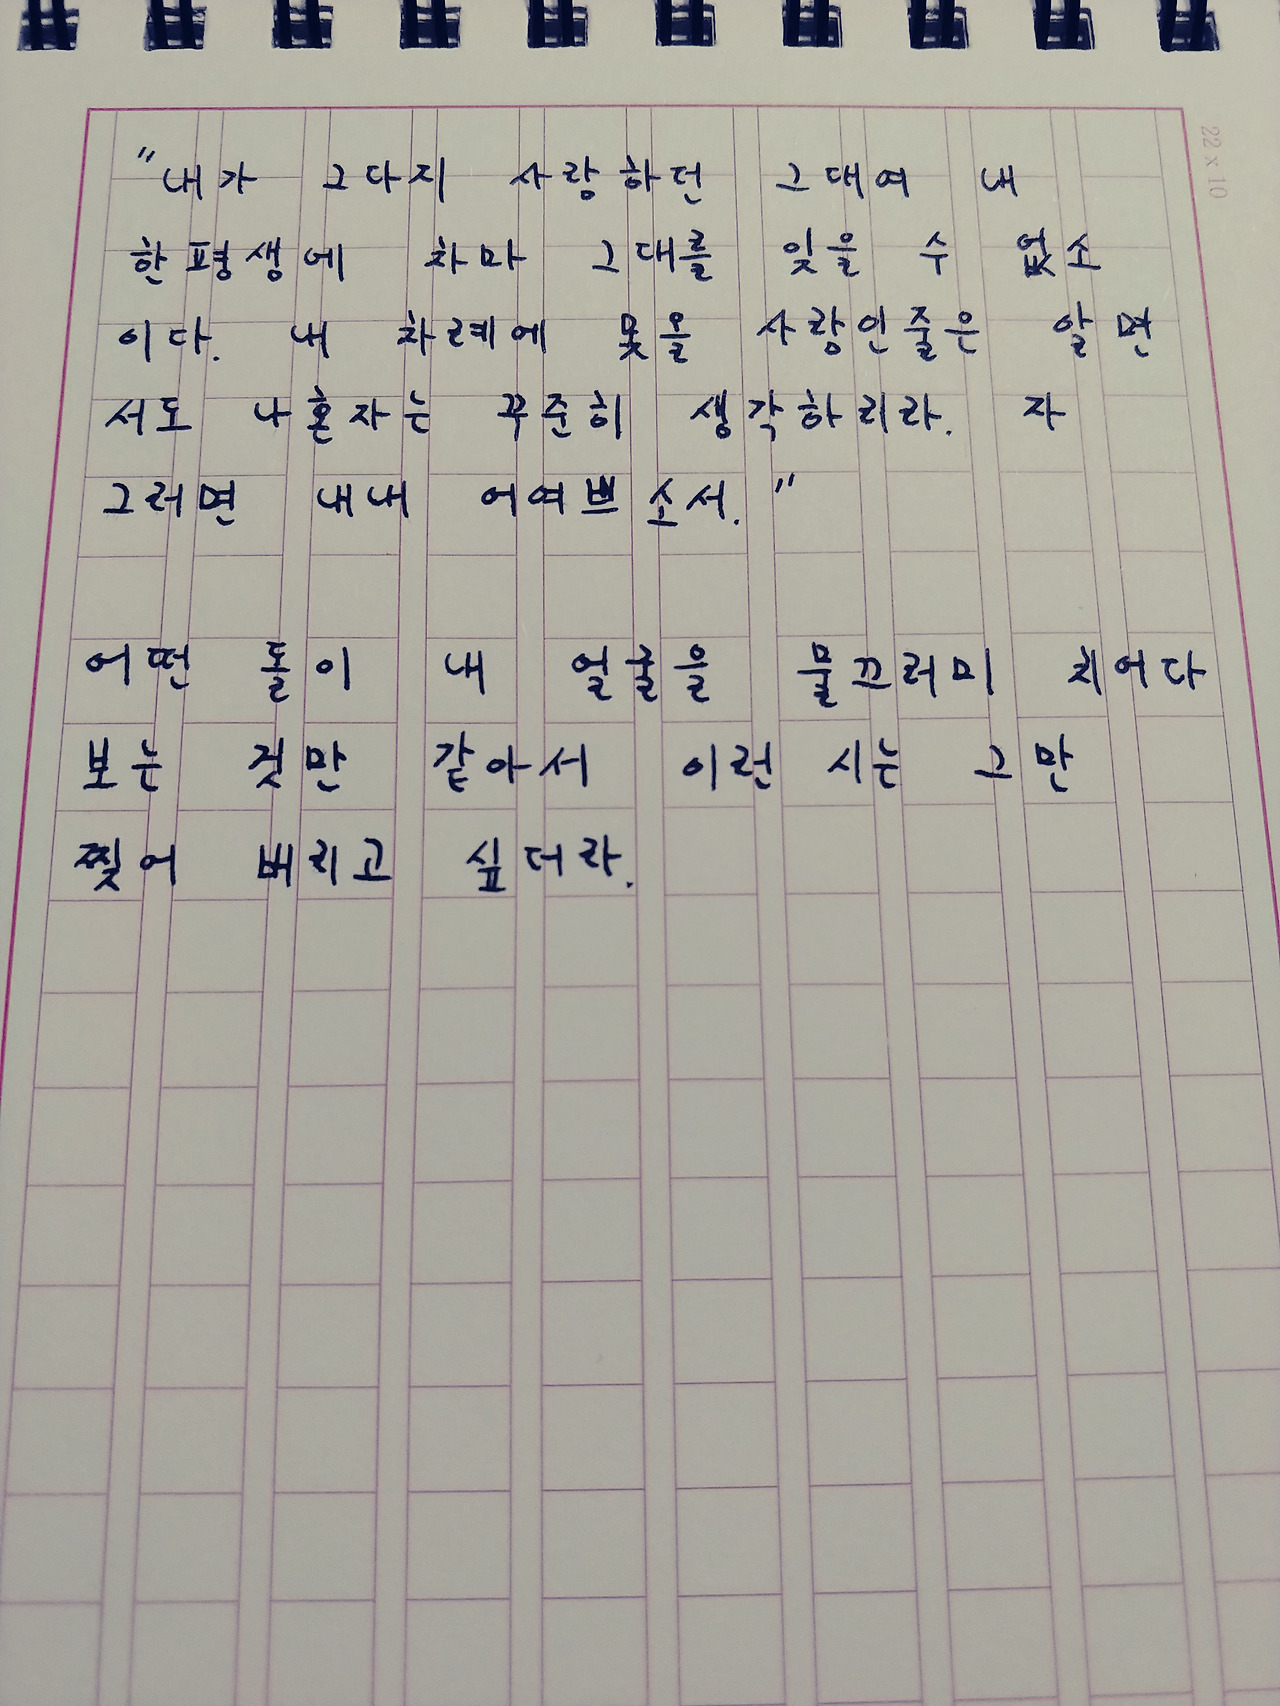 "내가 그다지 사랑하던 그대여 내
한평생에 차마 그대를 잊을 수 없소
이다. 내 차례에 못올 사랑인줄은 알면
서도 나혼자는 꾸준히 생각하리라. 자
그러면 내내 어여쁘소서."
어떤 돌이 내 얼굴을 물끄러미 치어다
보는 것만 같아서 이런 시는 그만
찢어 버리고 싶더라.
22 x 10